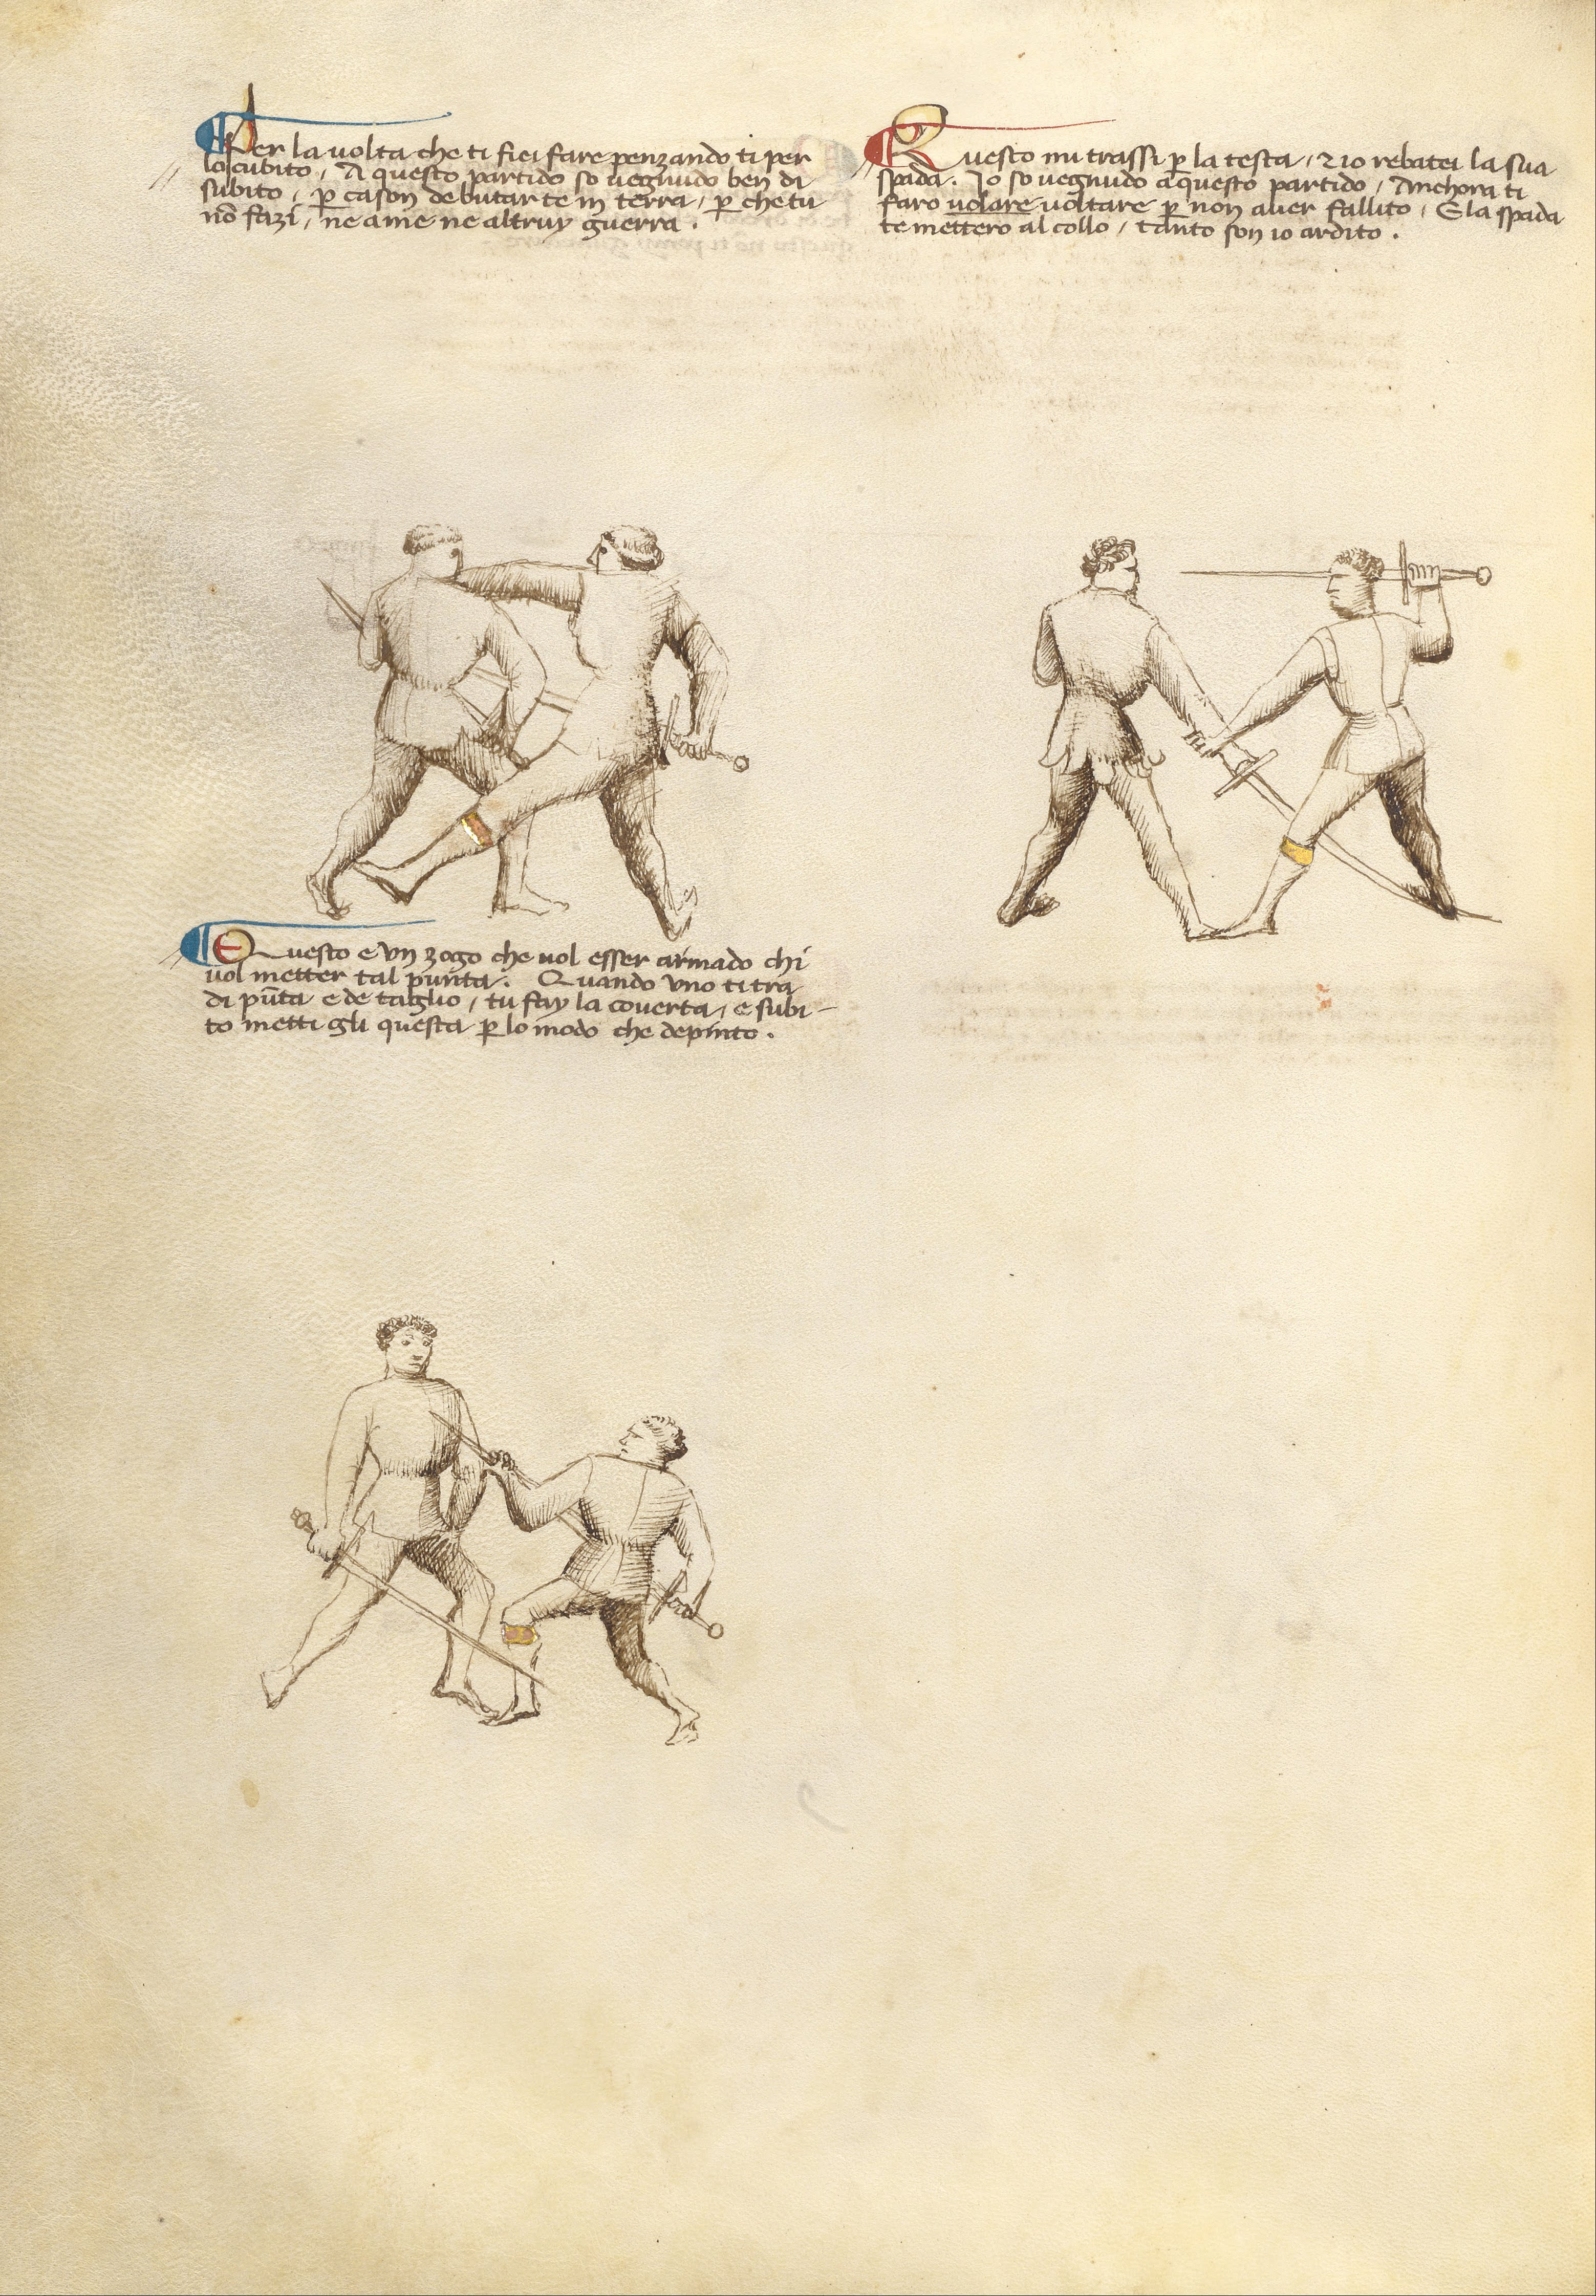 Per la uolta che ti fici fare penzando ti per
lo cubito, A questo partido so uegnudo ben di
subito, p cason de butarte in terra, p che tu
nō fazi, ne a me ne altruy guerra.
Questo mi trassi p la testa, ⁊ io rebatei la sua
spada. Io so uegnudo a questo partido, Anchora ti
faro uolare uoltare p non auer fallito, E la spada
te mettero al collo, tanto son io ardito.
Questo e un zogo che uol esser armado chi
uol metter tal punta. Quando uno ti tra
di pūta e de taglio, tu fay la couerta, e subi-
to metti gli questa p lo modo che depinto.